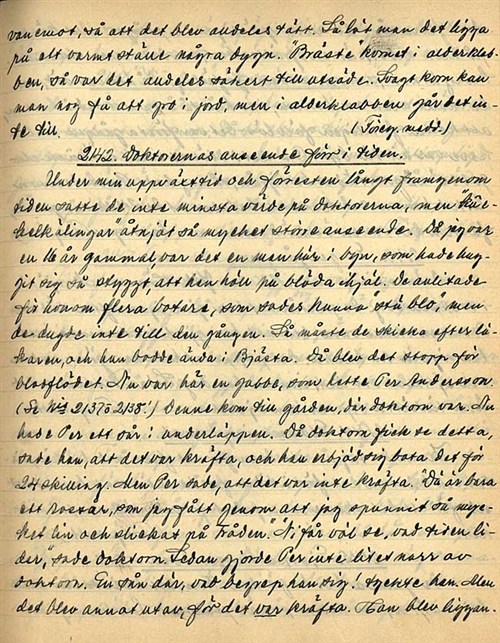 vanemot, så att det blev andeles tätt. Så lät man det ligga
på ett varmt ställe några dygn. "Bräste" kornet i alderklab-
ben, så var det andeles säkert till utsäde. Svagt korn kan
man nog få att gro i jord, men i alderklabben går det in-
te till. (Föreg. medd.)
2142. Doktorernas anseende förr i tiden.
Under min uppväxttid och förresten långt framgenom
tiden satte de inte minsta värde på doktorerna, men
kälingar" åtnjöt så mycket större anseende. Då jag var
en 16 år gammal, var det en man här i byn, som hade hug-
git sig så styggt, att han höll på blöda ihjäl. De anlitade
för honom flera botare, som sades kunna "stä blo", men
de dugde inte till den gången. Så måste de skicka efter lä-
karen, och han bodde ända i Bjästa. Då blev det stopp för
blodflödet. Nu var här en gubbe, som hette Per Andersson.
(Se N:is 2137 o 2138!) Denne kom till gården, där doktorn var. Nu
hade Per ett sår i underläppen. Då doktorn fick se detta,
sade han, att det var kräfta, och han erbjöd sig bota det för
24 skilling. Men Per sade, att det var inte kräfta. "Dä är bara
ett rossår, som jeg fått genom att jag spunnit så myc-
ket lin och slickat på tråden." "Ni får väl se, vad tiden li-
der," sade doktorn. Sedan gjorde Per inte litet narr av
doktorn. En sån där, vad begrep han sig! tyckte han. Men
det blev annat utav, för det var kräfta. Han blev liggan-